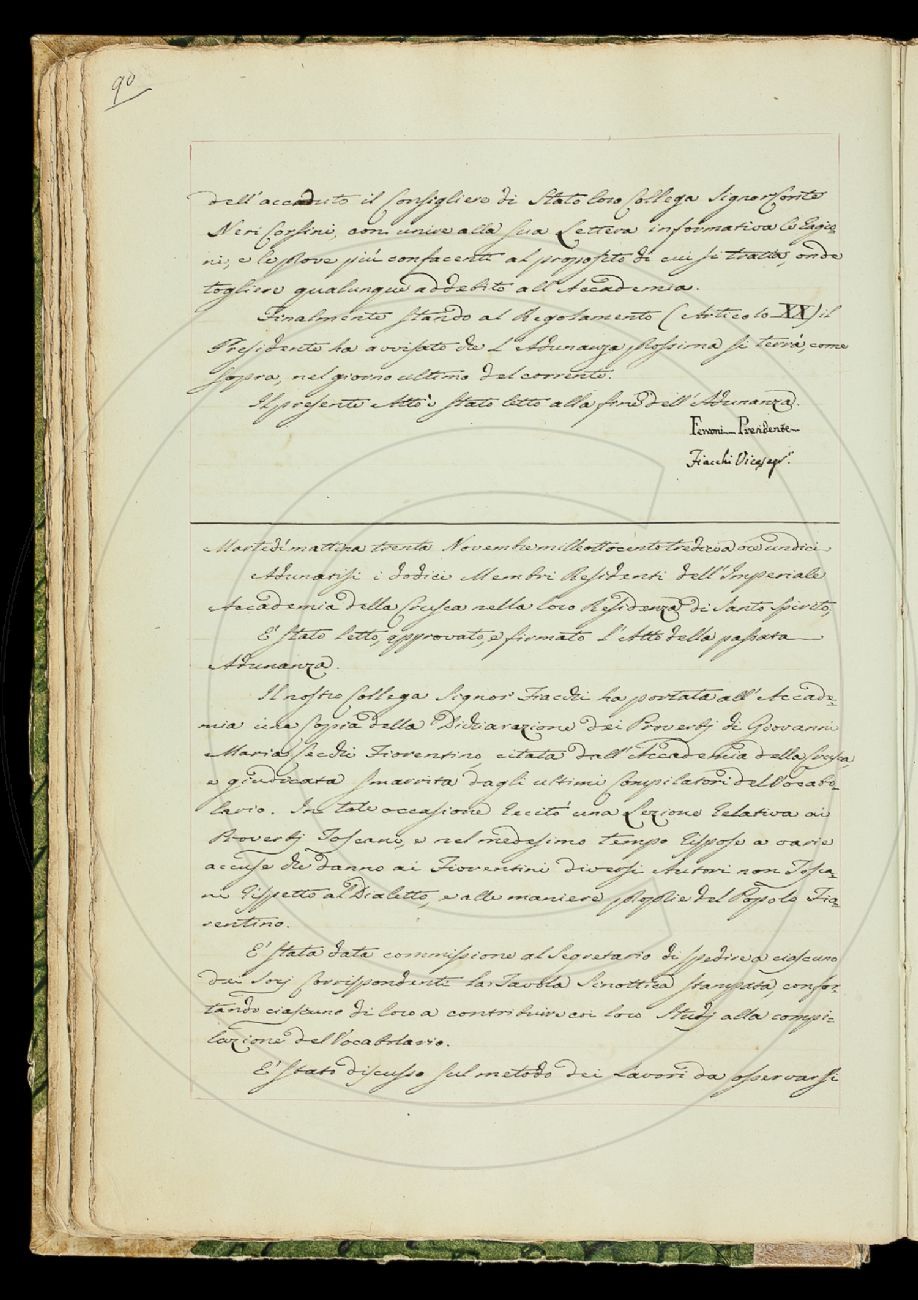 90
dell'accaduto il Consigliere di Stato loro Collega Signor Conte
Neri Corsini, con unire alla sua Lettera informativa le Ragio-
ni, e le Prove più confacenti al proposito di cui si tratta, onde
togliere qualunque addebito all'Accademia.
Finalmente stando al Regolamento (Articolo XX) il
Presidente ha avvisato che l'Adunanza prossima si terrà, come
sopra, nel giorno ultimo del corrente.
Il presente Atto è stato letto alla fine dell'Adunanza.
Ferroni Presidente
Fiacchi Vicesegr.
Martedì mattina trenta Novembre milleottocentotredici a ore undici
Adunatisi i dodici Membri Residenti dell'Imperiale
Accademia della Crusca nella loro Residenza di Santo Spirito,
E' stato letto, approvato, e firmato l'Atto della passata
Adunanza.
Il nostro Collega Signor Fiacchi ha portata all'Accade-
mia una Copia della Dichiarazione dei Proverbj di Giovanni
Maria Cecchi Fiorentino, citata dall'Accademia della Crusca,
e giudicata smarrita dagli ultimi Compilatori del Vocabo-
lario. In tale occasione recitò una Lezione relativa ai
Proverbj Toscani, e nel medesimo tempo rispose a varie
accuse che danno ai Fiorentini diversi Autori non Tosca-
ni rispetto al Dialetto, e alle maniere proprie del Popolo Fio-
rentino.
E' stata data commissione al Segretario di spedire a ciascuno
dei Socj Corrispondenti la Tavola Sinottica stampata, confor-
tando ciascuno di loro a contribuire coi loro Studj alla compi-
lazione del Vocabolario.
E' stato discusso sul metodo dei Lavori da osservarsi